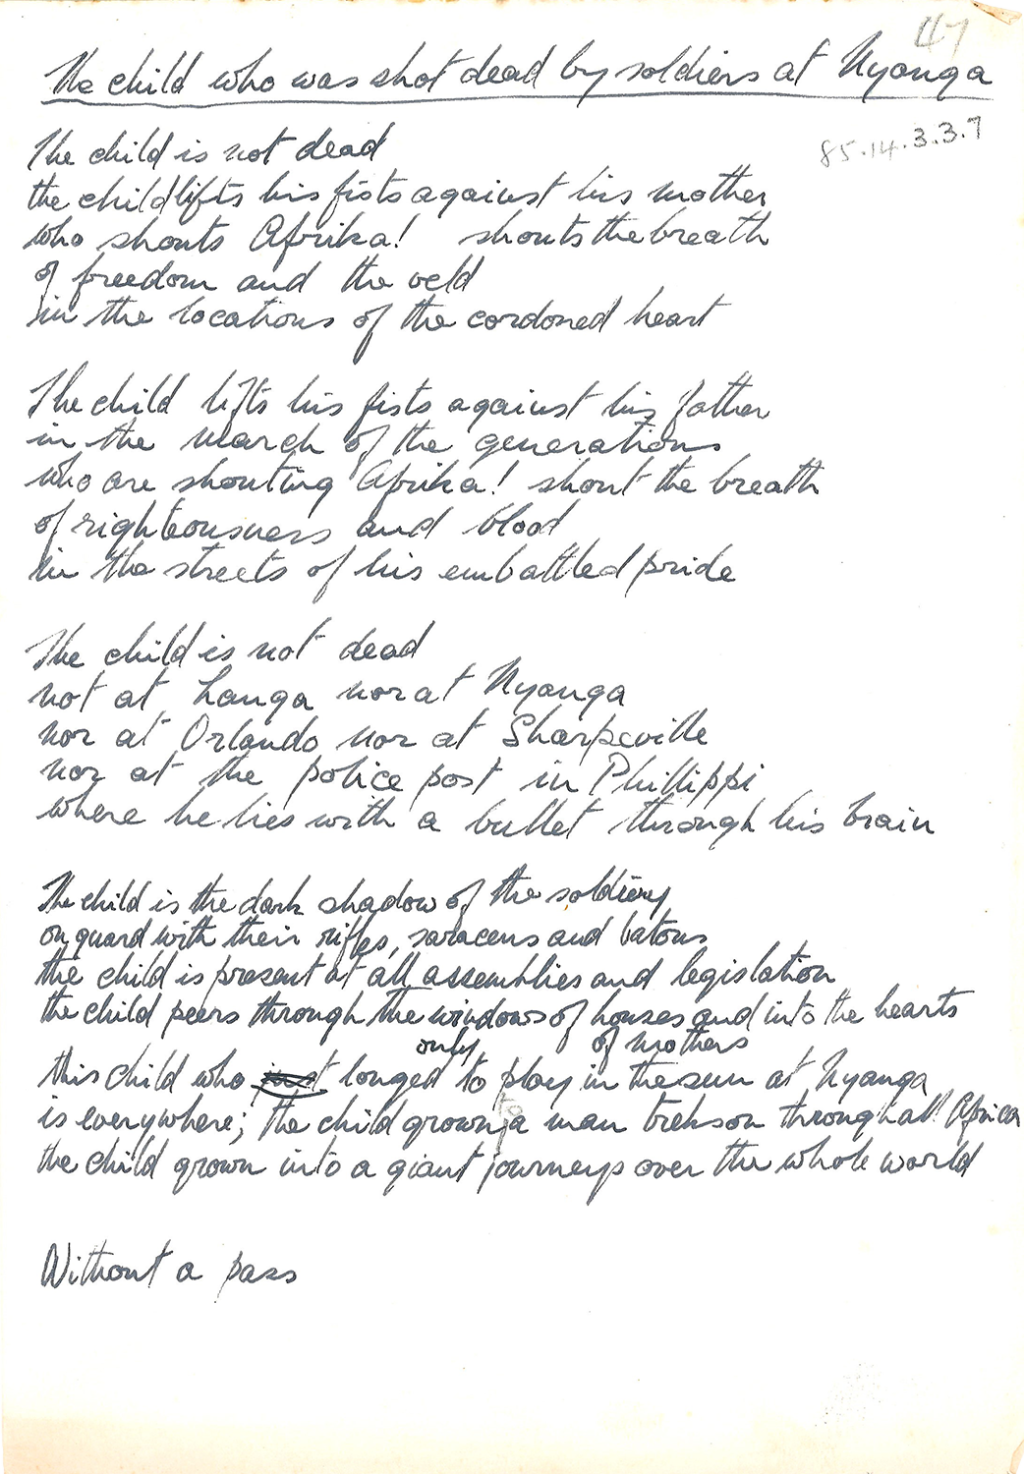 47
The child who was shot dead by soldiers at Nyanga
85.14.3.3.7
The child is not dead
the child lifts his fists against his mother
who shouts Afrika! shouts the breath
of freedom and the veld
in the locations of the cordoned heart
The child lifts his fists against his father
in the march of the generations
who are shouting Afrika! shout the breath
of righteousness and blood
in the streets of his embattled pride
The child is not dead
not at Langa nor at Nyanga
nor at Orlando nor at Sharpeville
nor at the police post in Phillippi
where he lies with a bullet through his brain
The child is the dark shadow of the soldiers
on guard with their rifles, saracens and batons
the child is present at all assemblies and legislation
the child peers through the windows of houses and into the hearts
of mothers
this child who just only longed to play in the sun at Nyanga
is everywhere; the child grown a man treks on through all Africa
the child grown into a giant journeys over the whole world
Without a pass